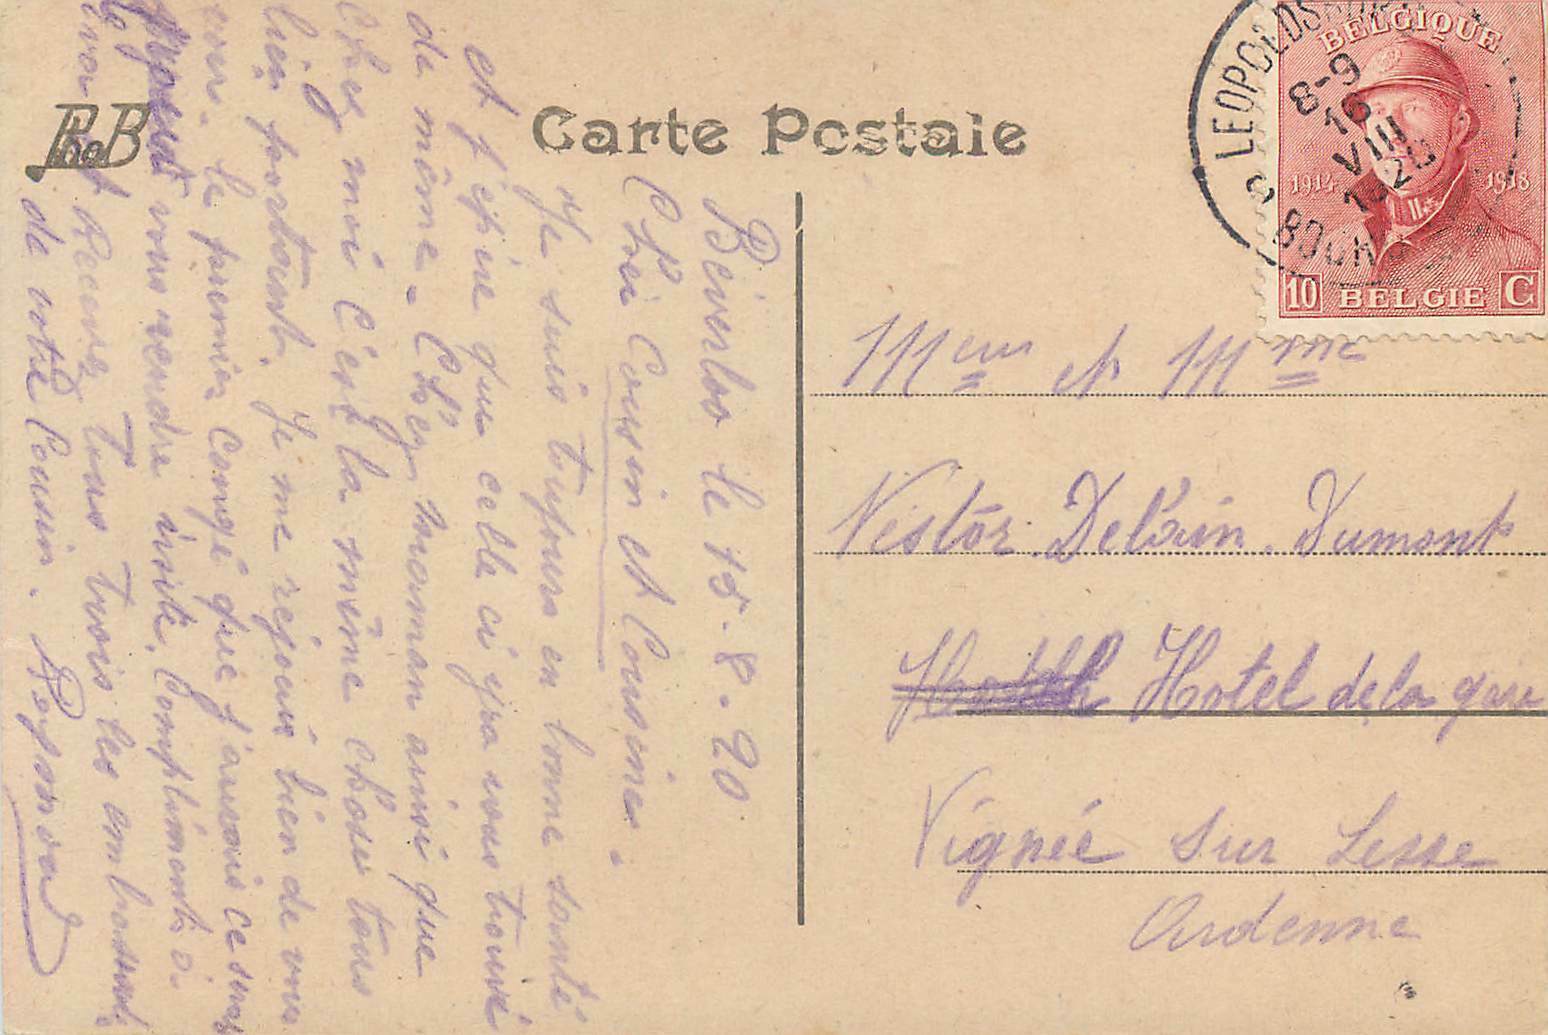 Carte Postale
PhoB
LEOPOLDSBURG
8-9
16
VIII
1920
BOURG
BELGIQUE
1914 1918
10 BELGIE C
Béverloo le 15-8-20
Cher Cousin et Cousine.
Je suis toujours en bonne santé
et j'épire que celle ci yra vous trouvé
de même. Chez maman ainsi que
Chez moi C'est la même chose tous
bien portant. Je me réjouis bien de vous
voir. le premier congé que j'aurais ce sera
vous rendre visite. Compliments à
Recevez tous trois les embrassades
de votre Cousin. Raymond
Meur et Mme
Nestor Delvin. Dumont
Hotel de la gare
Vignée sur Lesse
Ardenne